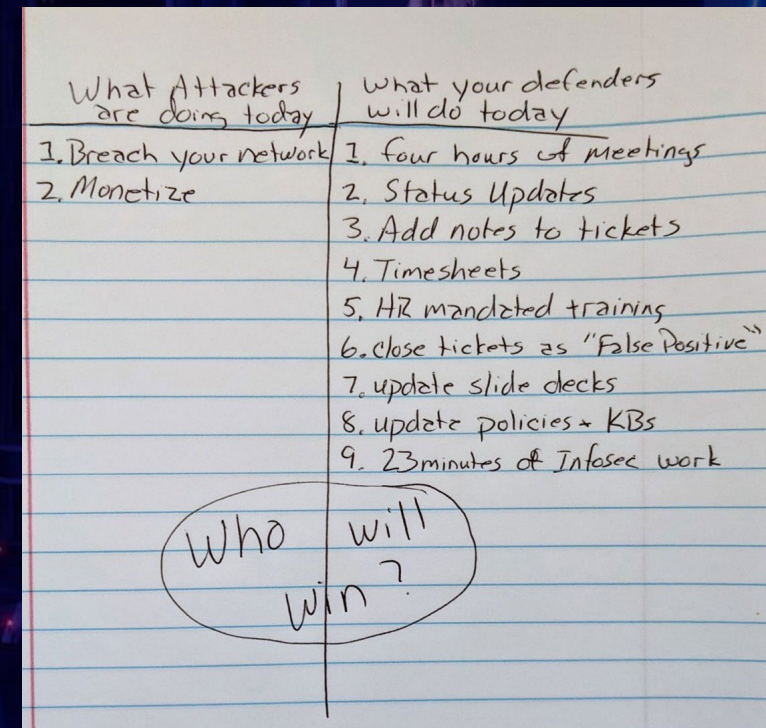 What Attackers
are doing today
1. Breach your network
2. Monetize
What your defenders
will do today
1. four hours of meetings
2. Status Updates
3. Add notes to tickets
4. Timesheets
5. HR mandated training
6. Close tickets as "False Positive"
7. update slide decks
8. update policies + KBs
9. 23 minutes of Infosec work
Who will
win?